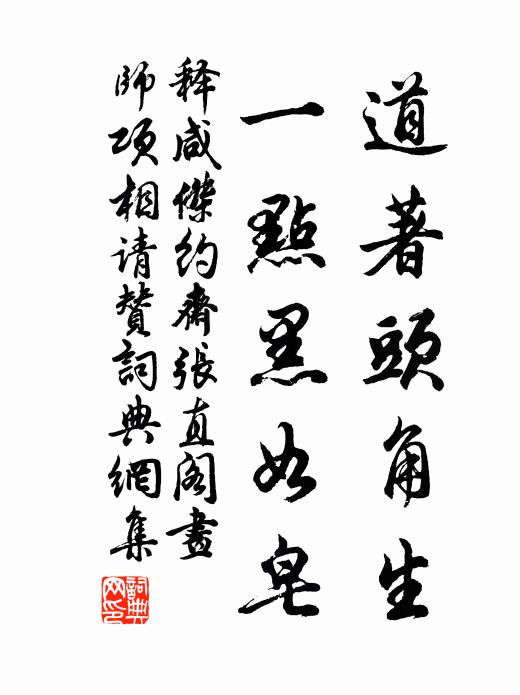 道著頭角生
一點黑如皂
释咸傑約齋張直阁畫
師项相请贊詞典網集
詞典网印